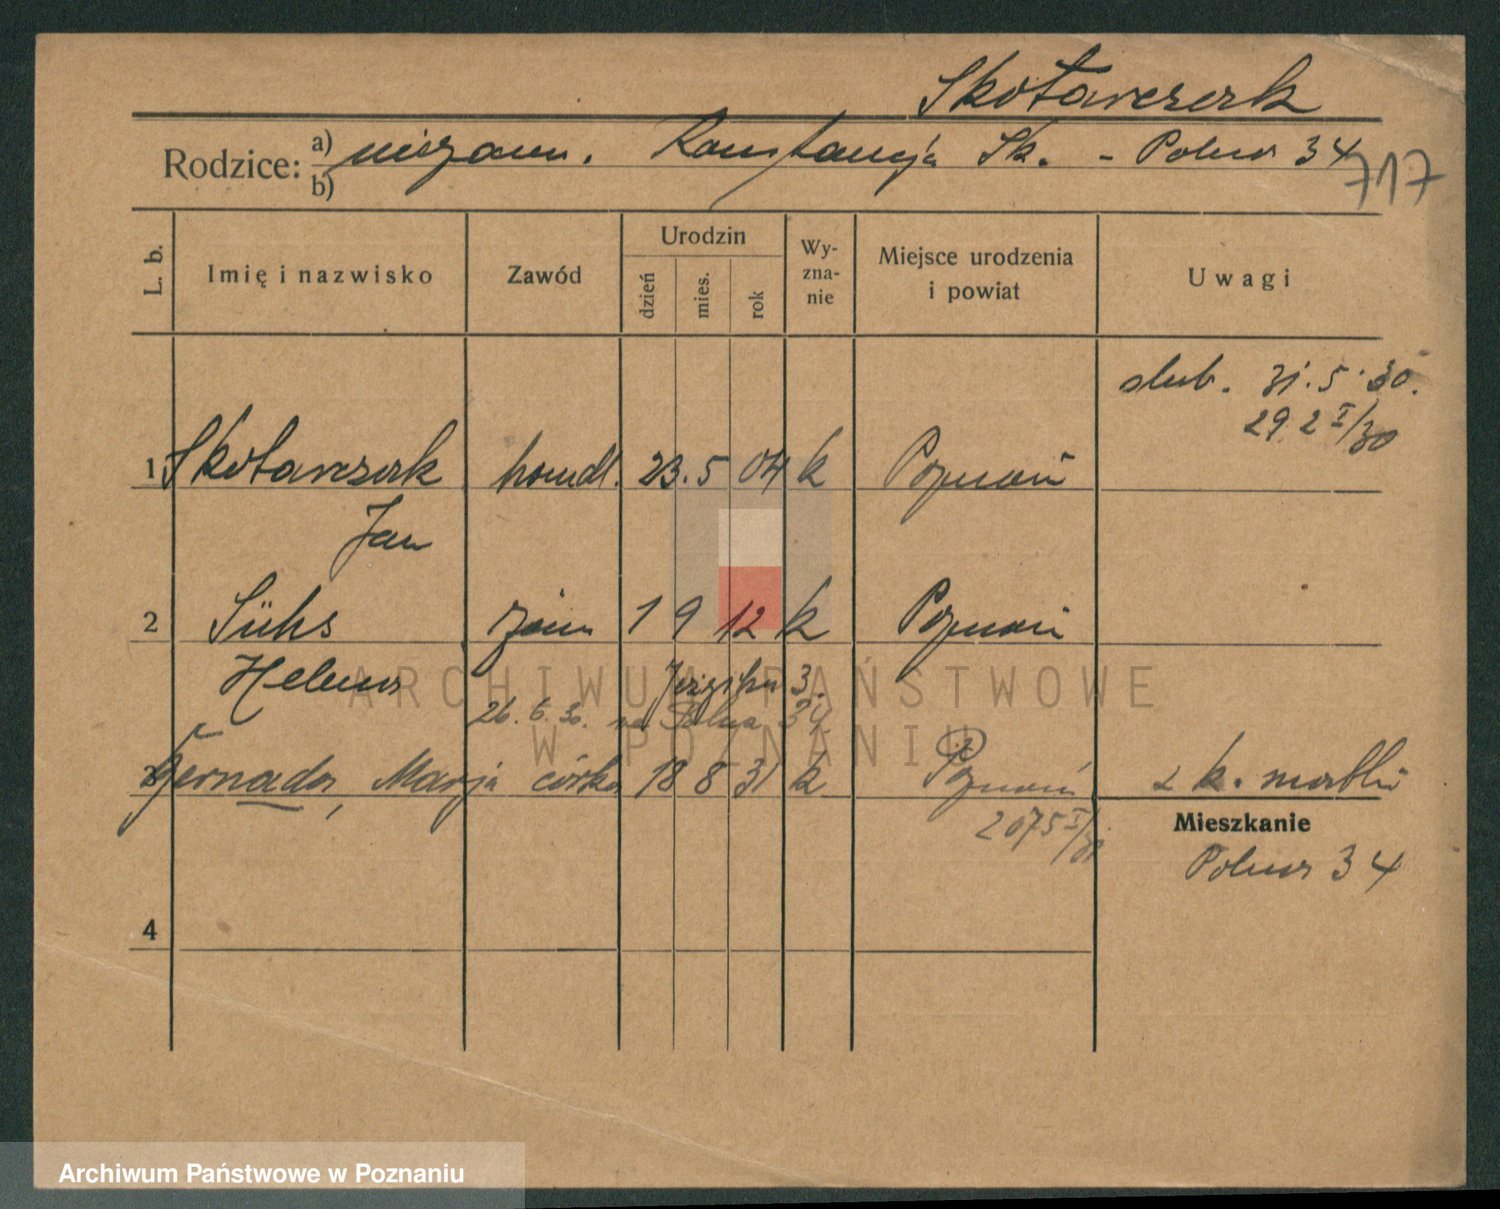 Skotarczak
Rodzice: a) niezam. Konstancja Sk. - Polna 34
b)
717
L. b. Imię i nazwisko Zawód Urodzin dzień mies. rok Wy-zna-nie Miejsce urodzenia i powiat Uwagi
ślub. 31.5.30.
29 2 I/30
1 Skotarczak handl. 23. 5 04 k Poznań
Jan
2 Sühs żona 1 9 12 k Poznań
Helena Józefa 3.
26. 6. 30. na Polna 34
3 Bernarda, Marja córka 18 8 31 k Poznań z k. matki
2075 I/31
Mieszkanie
Polna 34
4
ARCHIWUM PAŃSTWOWE
W POZNANIU
Archiwum Państwowe w Poznaniu